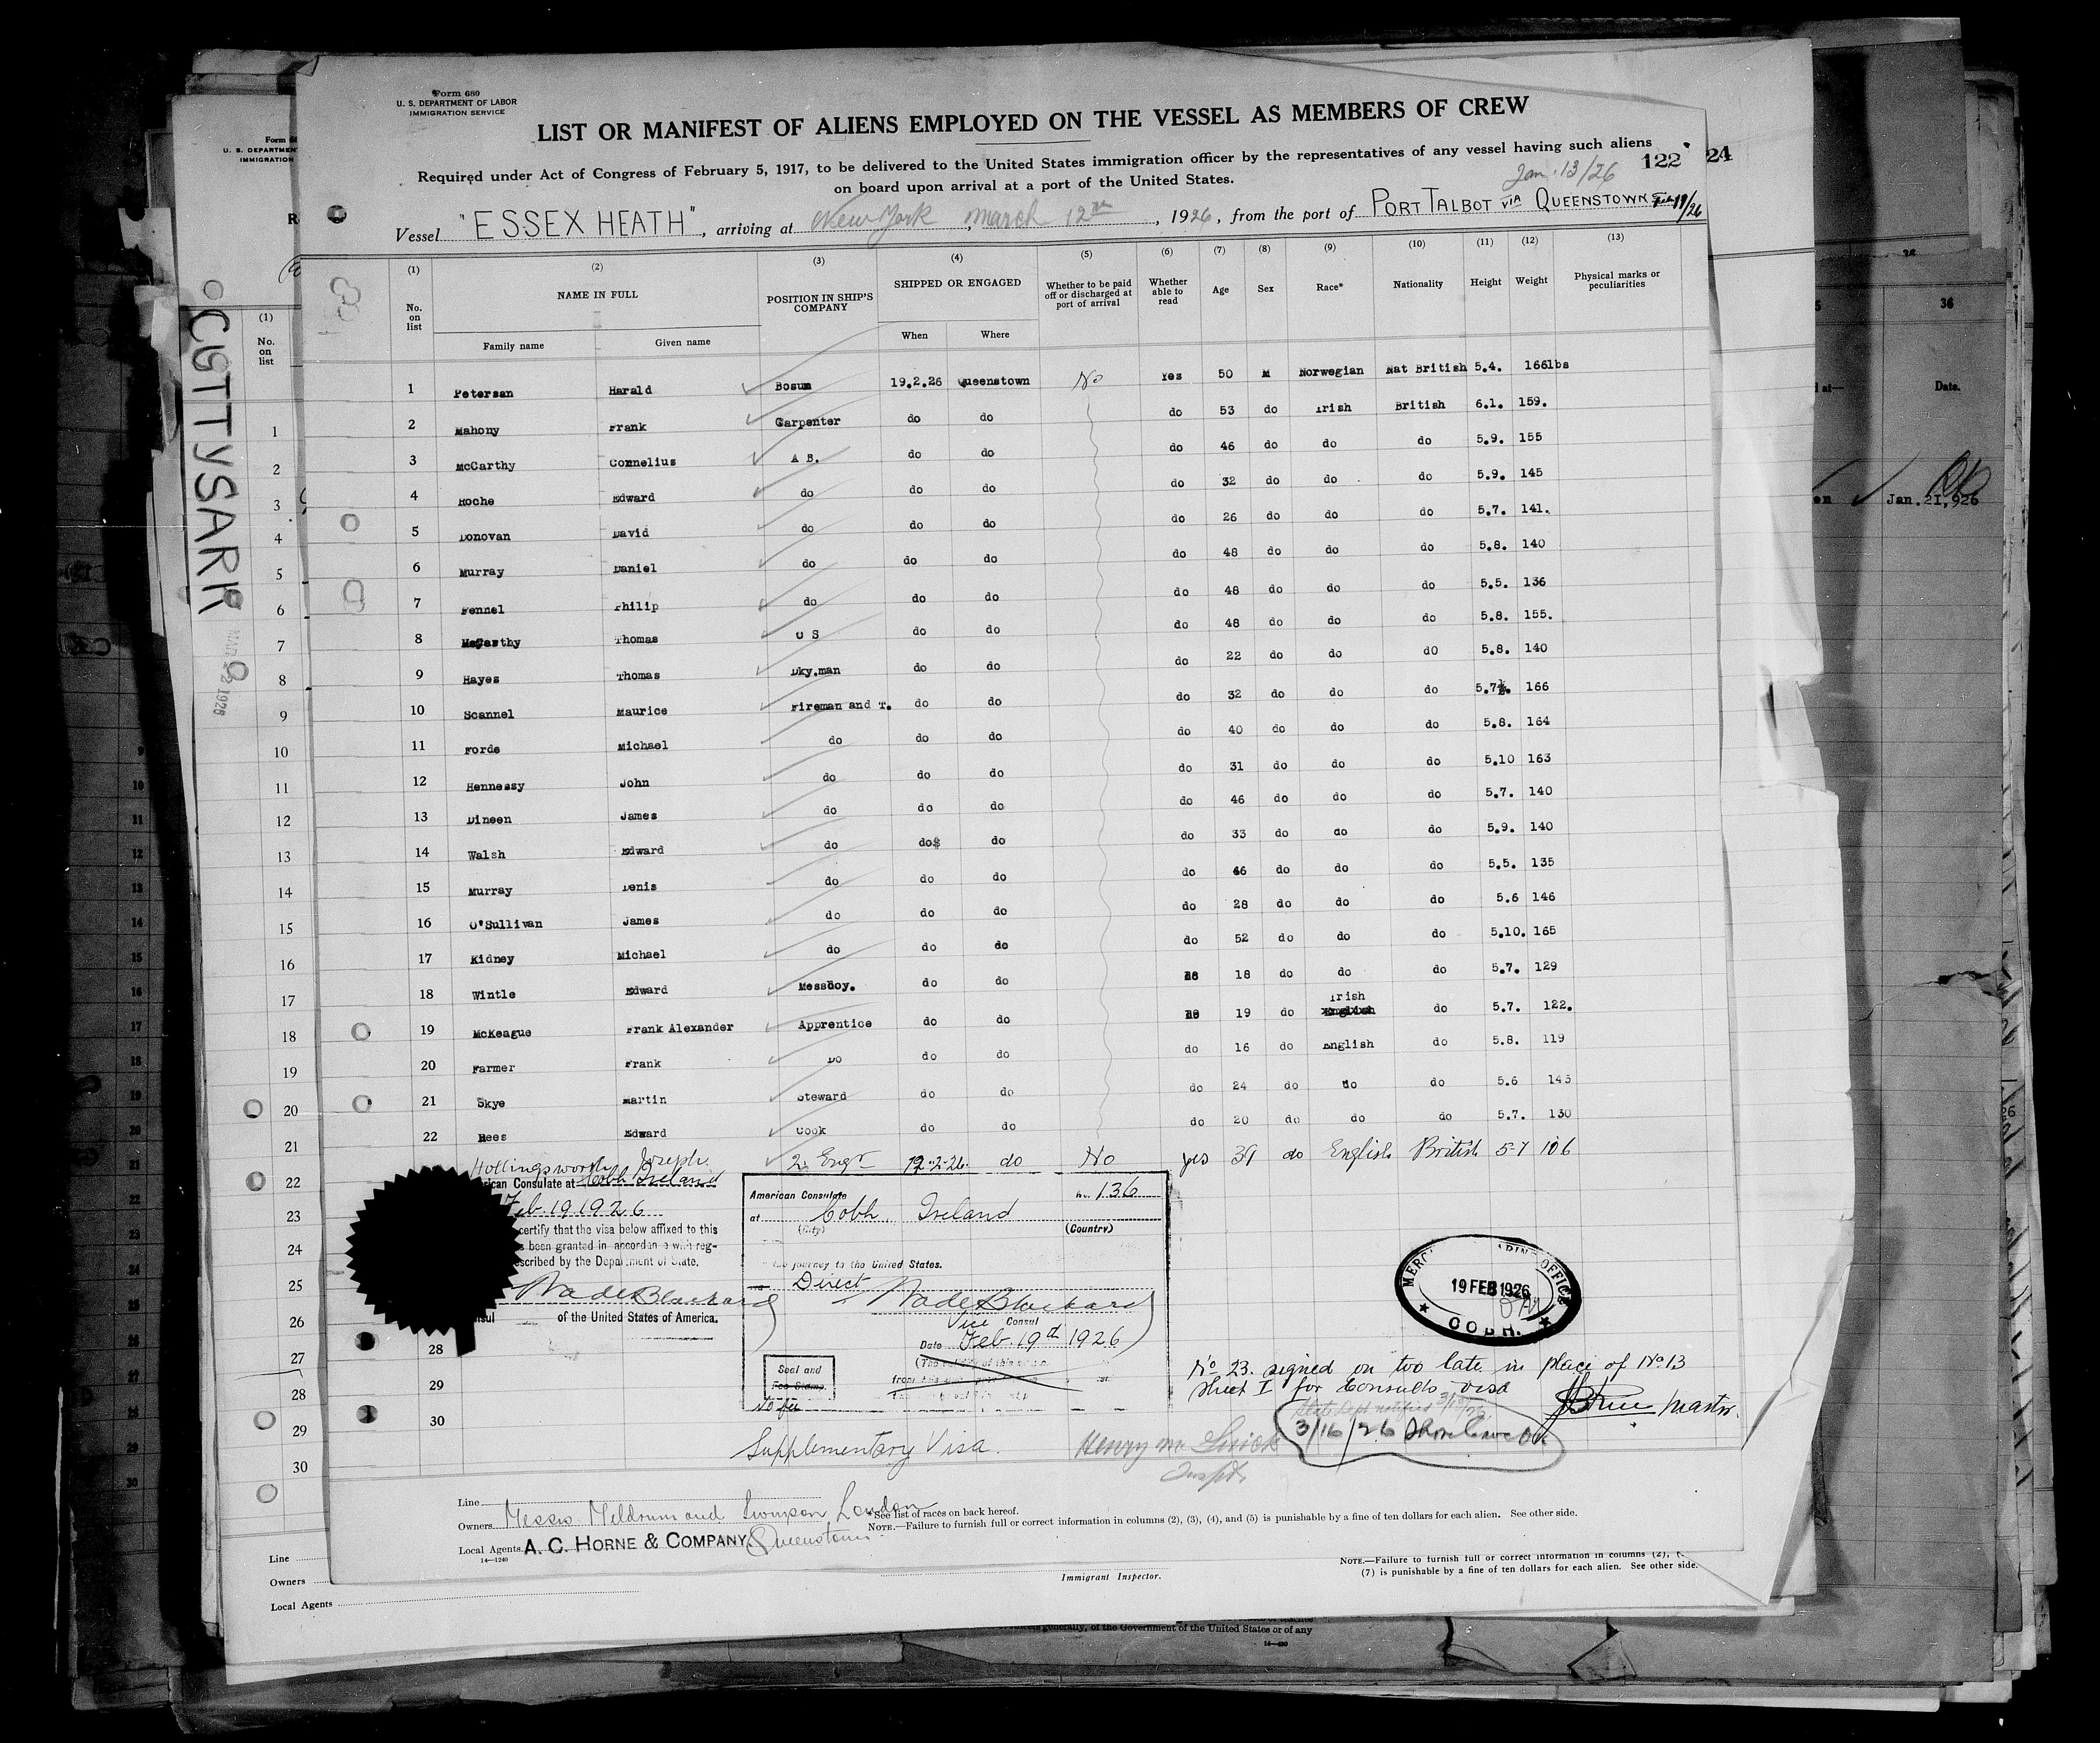 Form 680
U. S. DEPARTMENT OF LABOR
IMMIGRATION SERVICE
LIST OR MANIFEST OF ALIENS EMPLOYED ON THE VESSEL AS MEMBERS OF CREW
Required under Act of Congress of February 5, 1917, to be delivered to the United States immigration officer by the representatives of any vessel having such aliens
on board upon arrival at a port of the United States.
Jan. 13/26
122 24
Vessel "ESSEX HEATH", arriving at New York, March 12th, 1926, from the port of PORT TALBOT VIA QUEENSTOWN Feb 19/26
(1) (2) (3) (4) (5) (6) (7) (8) (9) (10) (11) (12) (13)
No. on list NAME IN FULL POSITION IN SHIP'S COMPANY SHIPPED OR ENGAGED Whether to be paid off or discharged at port of arrival Whether able to read Age Sex Race* Nationality Height Weight Physical marks or peculiarities
Family name Given name When Where
1 Petersan Harald Bosum 19.2.26 Queenstown No Yes 50 M Norwegian Nat British 5.4. 166lbs
2 Mahony Frank Carpenter do do do 53 do Irish British 6.1. 159.
3 McCarthy Cornelius A B. do do do 46 do do do 5.9. 155
4 Roche Edward do do do do 32 do do do 5.9. 145
5 Donovan David do do do do 26 do do do 5.7. 141.
6 Murray Daniel do do do do 48 do do do 5.8. 140
7 Fennel Philip do do do do 48 do do do 5.5. 136
8 McCarthy Thomas O S do do do 48 do do do 5.8. 155.
9 Hayes Thomas Dky.man do do do 22 do do dO 5.8. 140
10 Scannel Maurice Fireman and T. do do do 32 do do do 5.7½. 166
11 Forde Michael do do do do 40 do do do 5.8. 164
12 Hennessy John do do do do 31 do do do 5.10 163
13 Dineen James do do do do 46 do do do 5.7. 140
14 Walsh Edward do do$ do do 33 do do do 5.9. 140
15 Murray Denis do do do do 46 do do do 5.5. 135
16 O'Sullivan James do do do do 28 do do do 5.6 146
17 Kidney Michael do do do do 52 do do do 5.10. 165
18 Wintle Edward Messboy. do do do 18 do do do 5.7. 129
19 McKeague Frank Alexander Apprentice do do do 19 do Irish English do 5.7. 122.
20 Farmer Frank Do do do do 16 do English do 5.8. 119
21 Skye Martin Steward do do do 24 do do do 5.6 145
22 Rees Edward Cook do do do 20 do do do 5.7. 130
Hollingsworth Joseph 2. Engr 12-2-26. do No yes 39 do English British 5-7 106
ican Consulate at Cobh Ireland
Feb. 19 1926
certify that the visa below affixed to this
s been granted in accordance with reg-
escribed by the Department of State.
Wade Blackard
nsul of the United States of America.
American Consulate No. 136
at Cobh Ireland
(City) (Country)
journey to the United States.
Direct
Wade Blackard
Vice Consul
Date Feb. 19d 1926
Seal and
Fee Stamp.
No fee
MERC ARINE OFFICE
19 FEB 1926
COBH.
No 23. signed on too late in place of No 13
sheet I for Consuls visa
Master.
State Dept notified
3/16/26
28
29
30
Supplementary Visa.
Henry M.
Insptr.
Line
Owners Messrs Meldrum and Swinson, London
Local Agents A. C. HORNE & COMPANY, Queenstown
14—1240
*See list of races on back hereof.
NOTE.—Failure to furnish full or correct information in columns (2), (3), (4), and (5) is punishable by a fine of ten dollars for each alien. See other side.
Form 68
U. S. DEPARTMEN
IMMIGRATION
CUTTYSARK
MAR 12 1926
(1)
No.
on
list
1
2
3
4
5
6
7
8
9
10
11
12
13
14
15
16
17
18
19
20
21
22
23
24
25
26
27
28
29
30
Line
Owners
Local Agents
Immigrant Inspector.
NOTE.—Failure to furnish full or correct information in columns (2), (
(7) is punishable by a fine of ten dollars for each alien. See other side.
36
d at—
Date.
en
Jan. 21, 926
generally, of the Government of the United States or of any